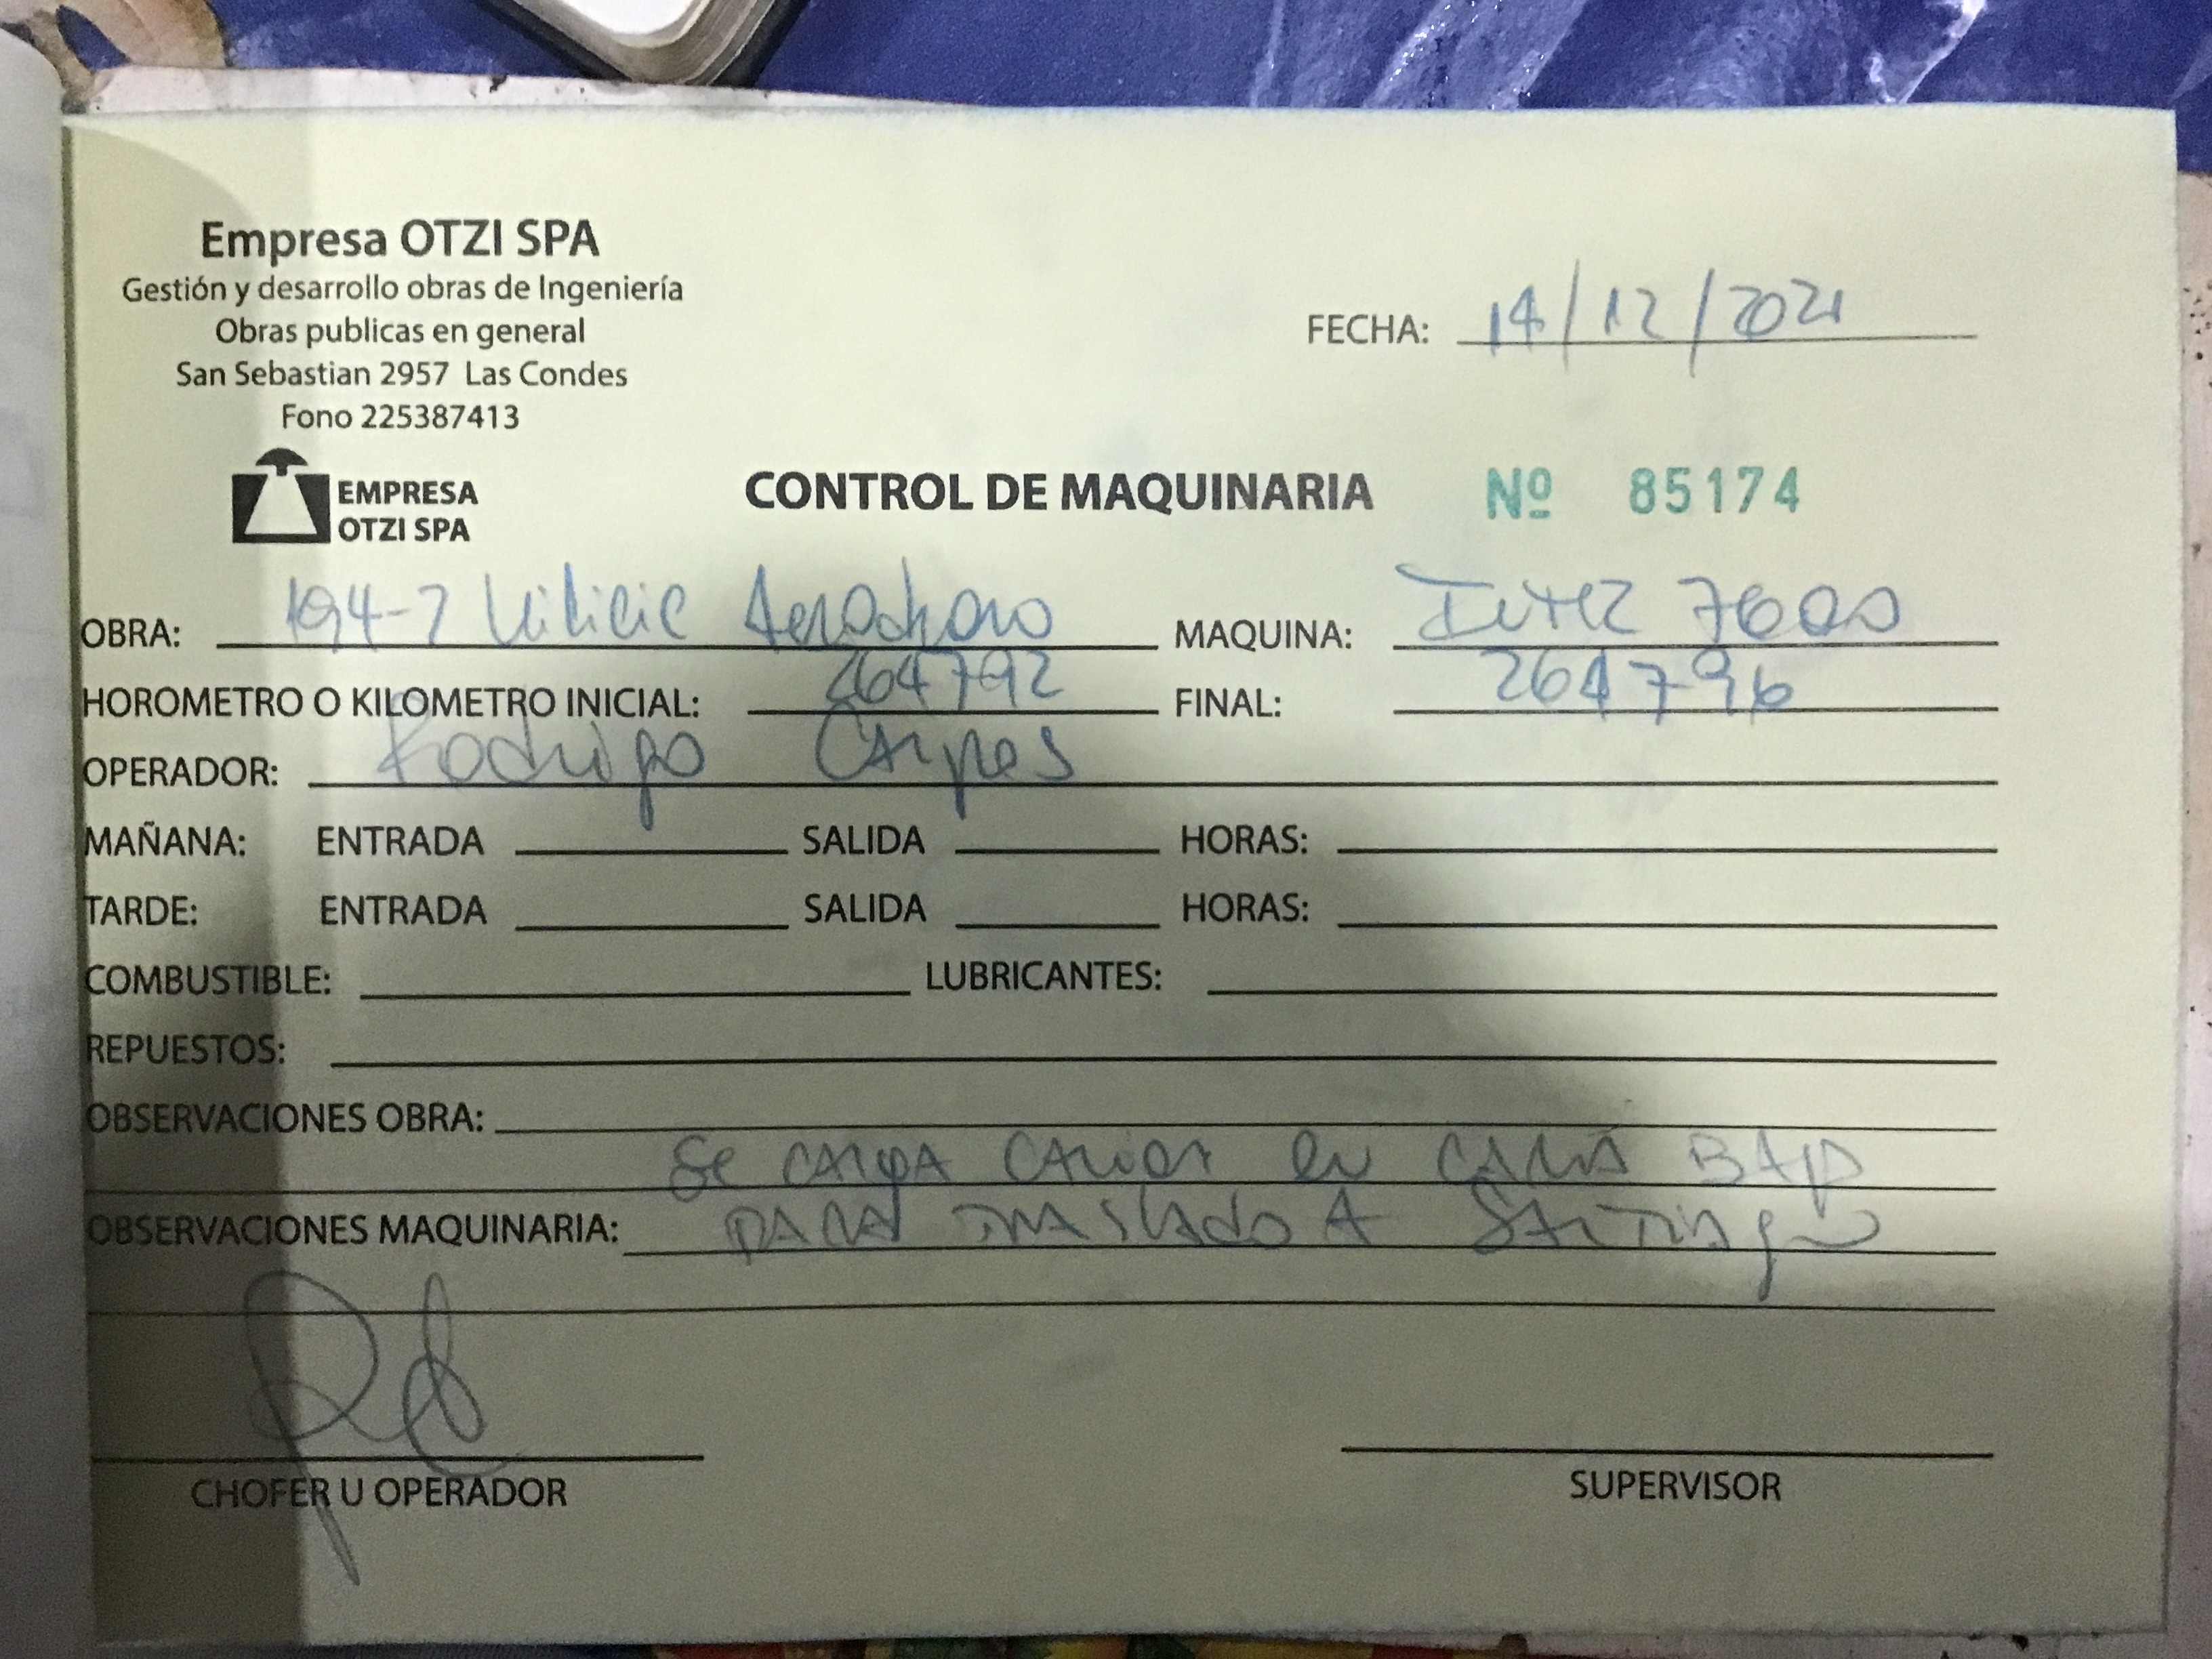 Empresa OTZI SPA
Gestión y desarrollo obras de Ingeniería
Obras publicas en general
San Sebastian 2957 Las Condes
Fono 225387413
FECHA: 14/12/2021
EMPRESA
OTZI SPA
CONTROL DE MAQUINARIA Nº 85174
OBRA: MAQUINA:
HOROMETRO O KILOMETRO INICIAL: 264792 FINAL: 264796
OPERADOR: Rodrigo
MAÑANA: ENTRADA SALIDA HORAS:
TARDE: ENTRADA SALIDA HORAS:
COMBUSTIBLE: LUBRICANTES:
REPUESTOS:
OBSERVACIONES OBRA:
Se CARGA CAMION en CAMA BAJA
OBSERVACIONES MAQUINARIA: PARA TRASLADO A SANTIAGO
CHOFER U OPERADOR SUPERVISOR